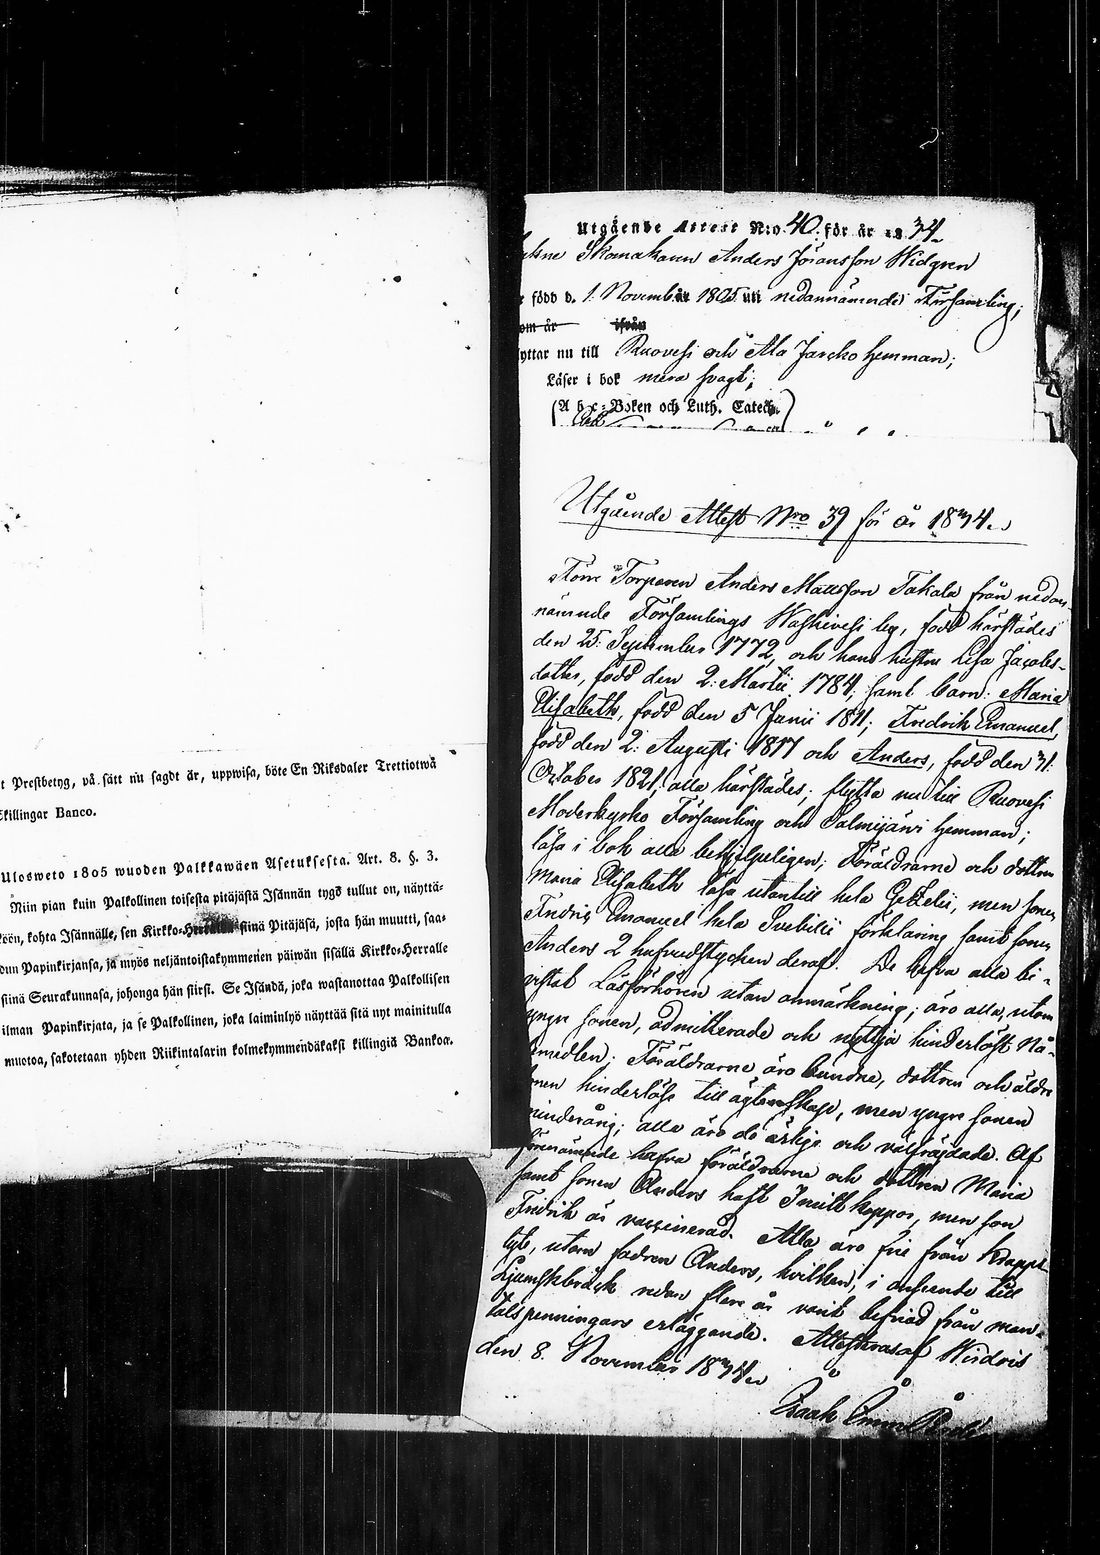 t Prestbetyg, på sätt nu sagdt är, uppwisa, böte En Riksdaler Trettiotwå
killingar Banco.
Ulosweto 1805 wuoden Palkkawäen Asetuksesta. Art. 8. §. 3.
Niin pian kuin Palkollinen toisesta pitäjästä Isännän tygö tullut on, näyttä-
köön, kohta Isännälle, sen Kirkko-Herralta siinä Pitäjäsä, josta hän muutti, saa-
dun Papinkirjansa, ja myös neljäntoistakymmenen päiwän sisällä Kirkko-Herralle
siinä Seurakunnasa, johonga hän siirsi. Se Isändä, joka wastanottaa Palkollisen
ilman Papinkirjata, ja se Palkollinen, joka laiminlyö näyttää sitä nyt mainitulla
muotoa, sakotetaan yhden Riikintalarin kolmekymmendäkaksi killingiä Bankoa.
Utgående Attest N:o 40. för år 1834.
Skomakaren Anders Jöransson Widgren
född d. 1. Novemb. 1805 uti nedannämnde Församling;
om år ifrån
yttar nu till Ruovesi och Ala Jarcko hemman;
Läser i bok mera svagt;
(A b c-Boken och Luth. Catech.)
Utgående Attest Nro 39 för år 1834.
Förre Torparen Anders Mattsson Takala från nedan-
nämnde Församlings Waskivesi by, född härstädes
den 25. September 1772, och hans hustru Lisa Jacobs-
dotter, född den 2. Martii 1784; samt barn: Maria
Elisabeth, född den 5 Junii 1811; Fredrik Emanuel,
född den 2. Augusti 1817 och Anders, född den 31.
October 1821, alla härstädes; flytta nu till Ruovesi
Moderkyrko Församling och Salmijärvi hemman;
läsa i bok alla behjelpeligen; Föräldrarne och dottren
Maria Elisabeth läsa utantill hela Gezelii, men sonen
Fredric Emanuel hela Svebilii förklaring samt sonen
Anders 2 hufvudstycken deraf. De hafva alla bi-
vistat Läsförhören utan anmärkning; äro alla, utom
yngre sonen, admitterade och nyttja hinderlöst Nå-
demedlen; Föräldrarne äro bundne, dottren och äldre
sonen hinderlöse till ägtenskap, men yngre sonen
minderårig; alla äro de ärlige och välfrejdade. Af
förenämnde hafva föräldrarne och dottren Maria
samt sonen Anders haft Smittkoppor, men son
Fredrik är vaccinerad. Alla äro frie från
utom fadren Anders, hvilken, i anseende till
Ljumskbråck redan flere år varit befriad från man-
talspenningars erläggande. Attesteras af Wirdois
den 8. November 1834.